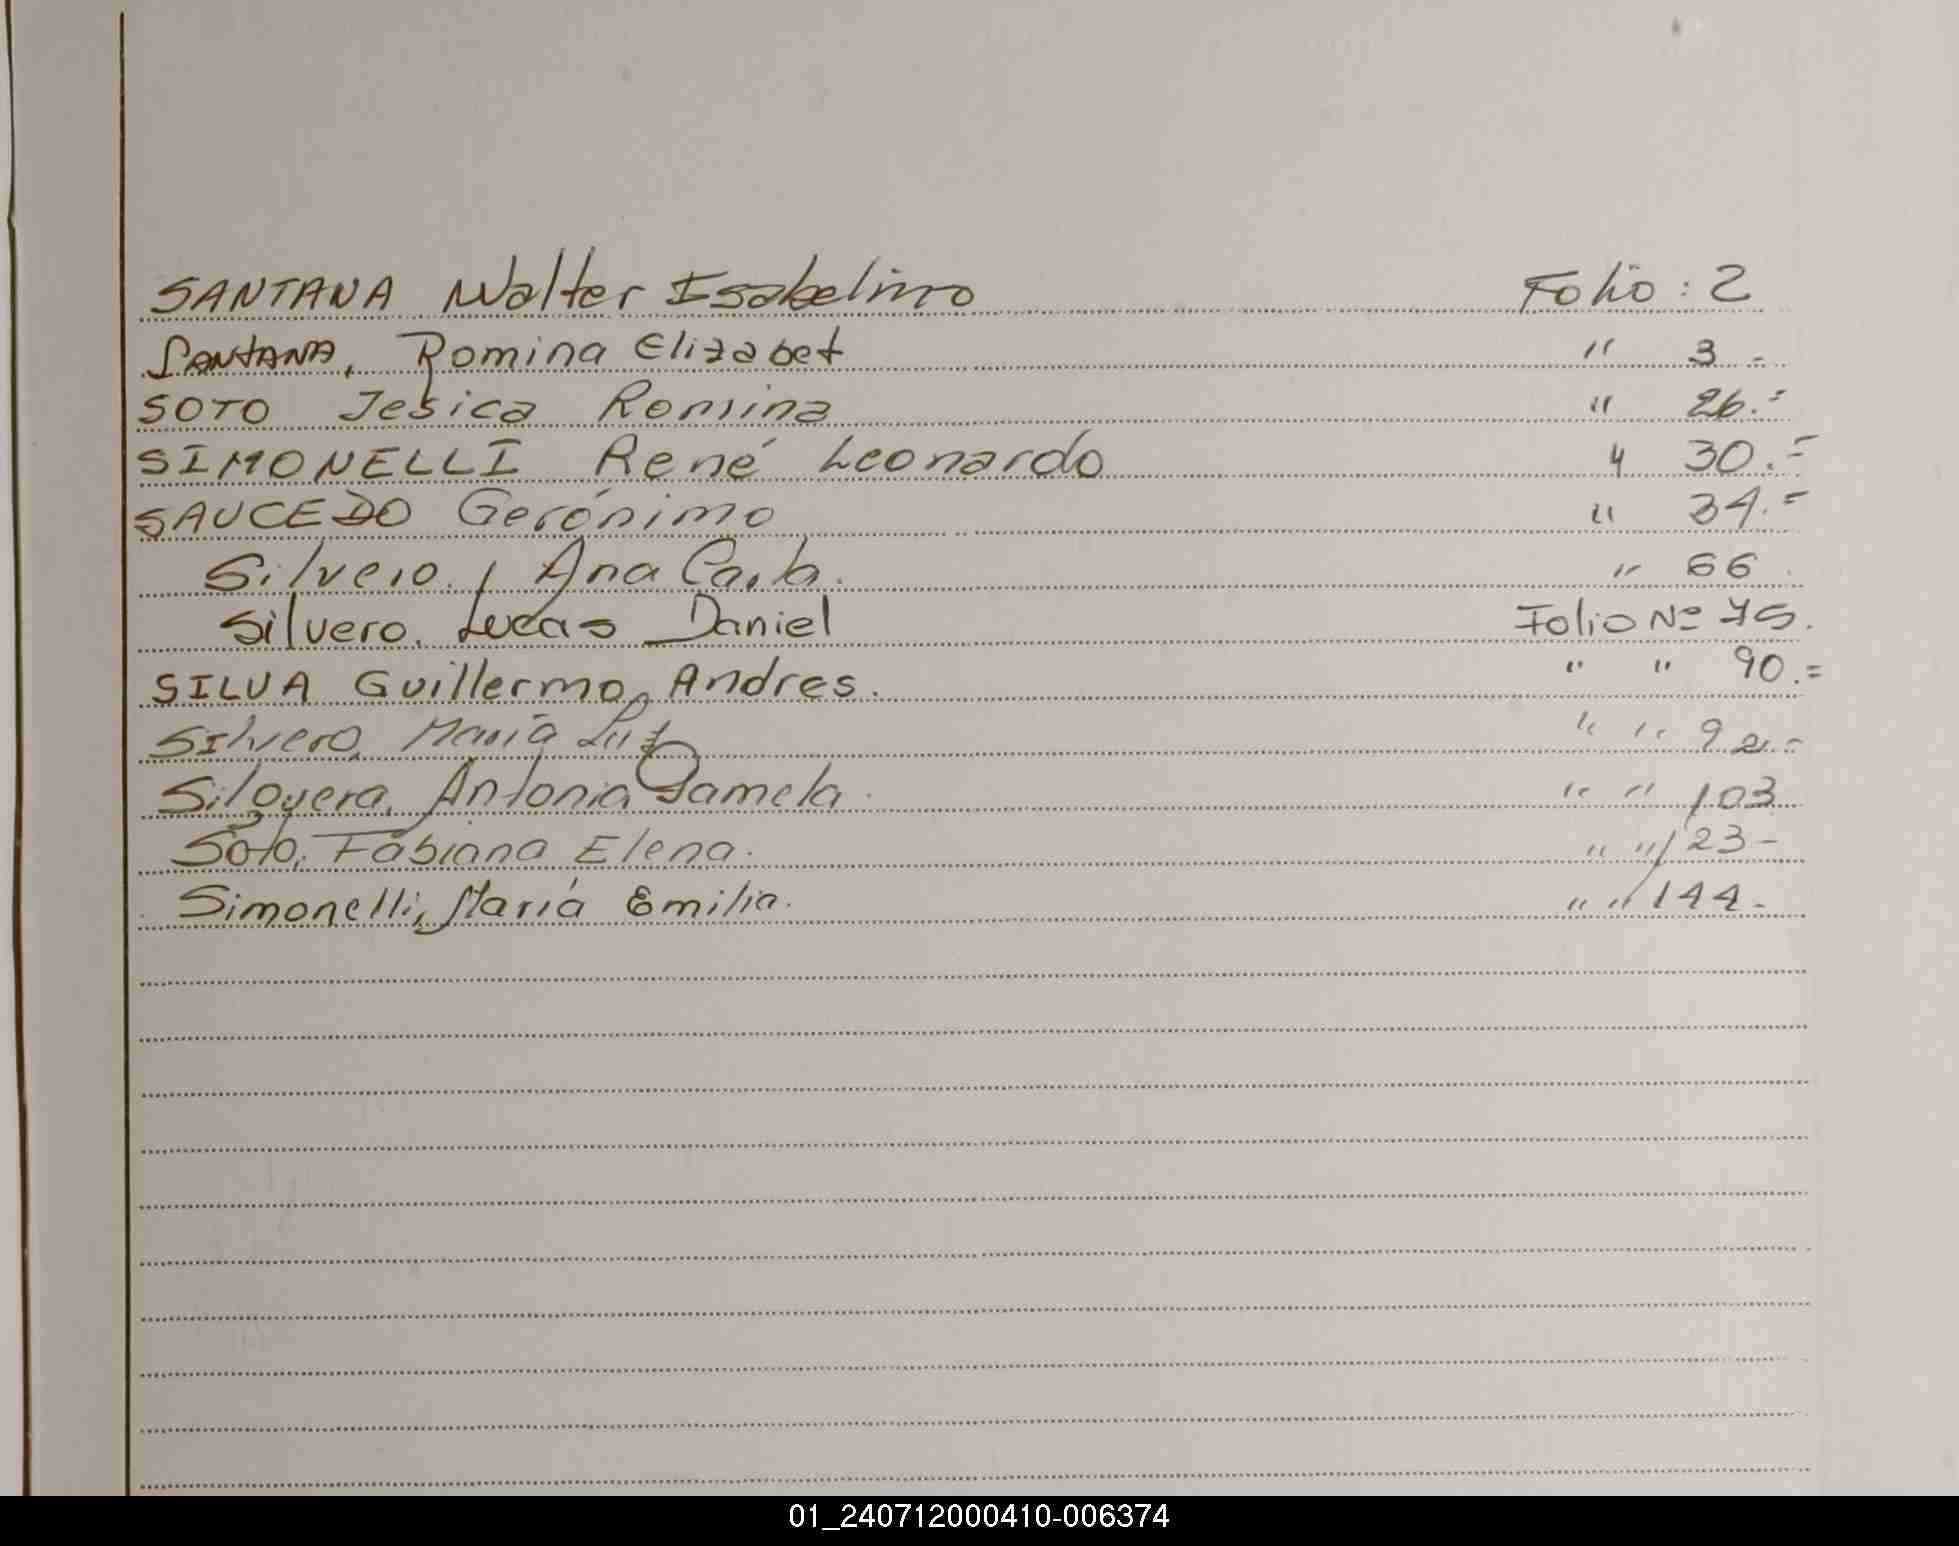 SANTANA Walter Isabelino Folio : 2
SANTANA, Romina Elizabet " 3.=
SOTO Jesica Romina " 26.=
SIMONELLI René Leonardo " 30.=
SAUCEDO Gerónimo " 34.=
Silvero, Ana Carla. " 66.
Silvero, Lucas Daniel Folio Nº 75.
SILVA Guillermo Andres. " " 90.=
Silvero, María Luz " " 92.=
Silguera, Antonia Pamela. " " 103
Soto, Fabiana Elena. " " 123-
Simonelli, María Emilia. " " 144-
01_240712000410-006374